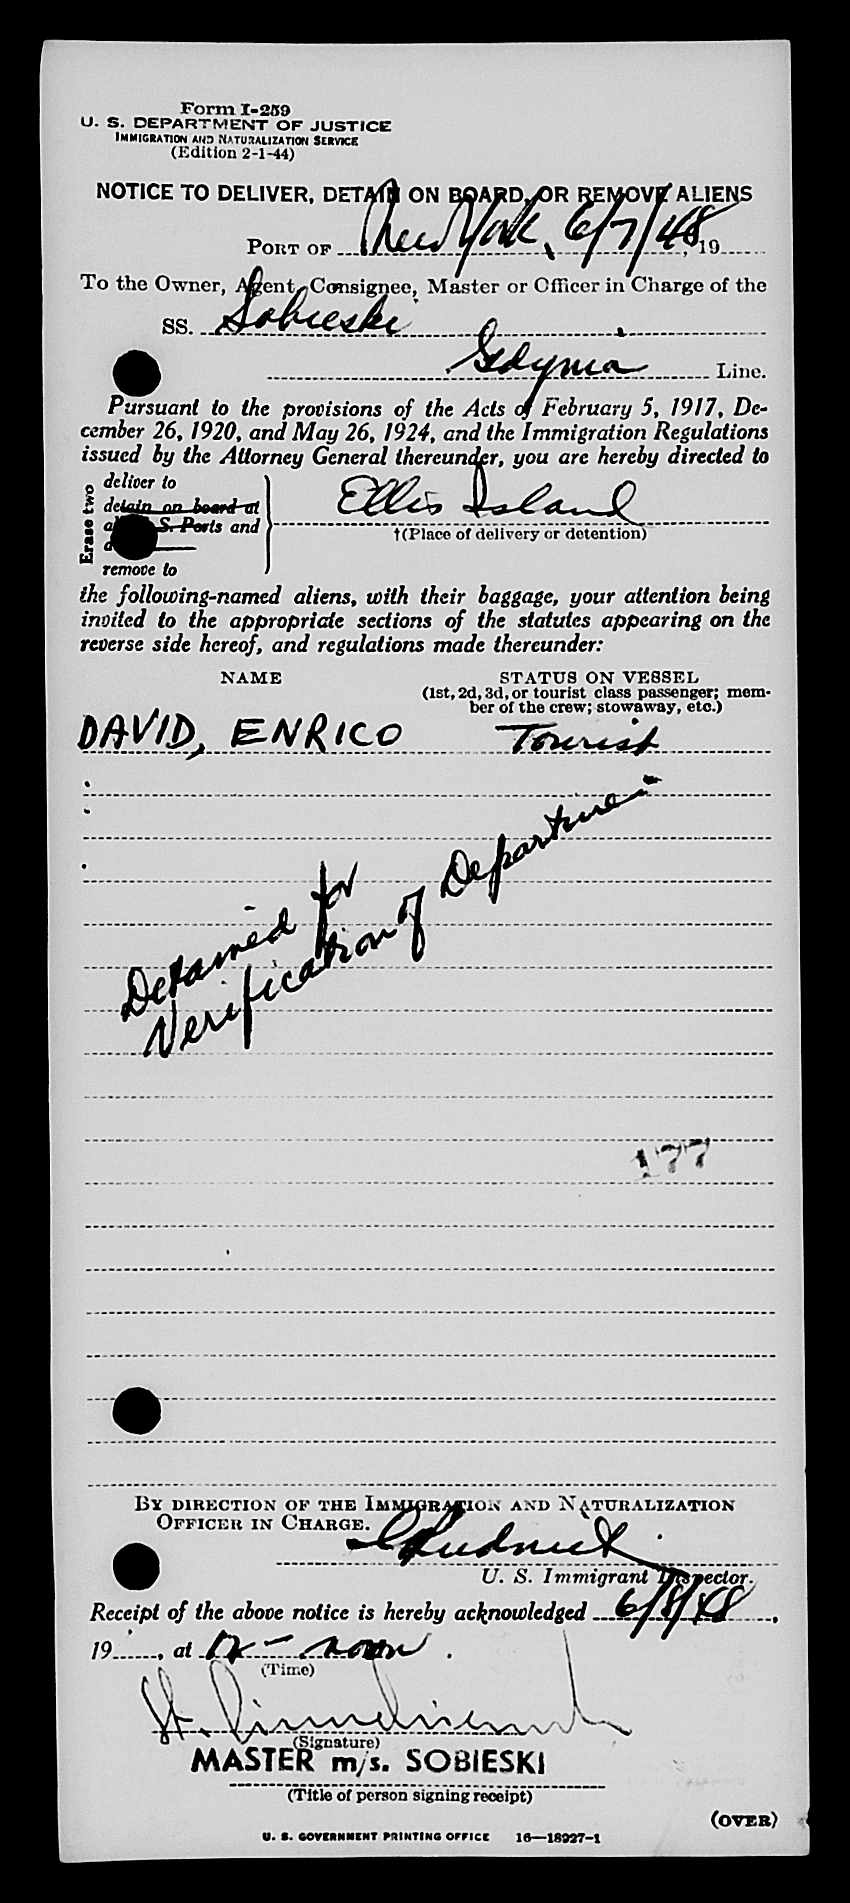 Form I-259
U. S. DEPARTMENT OF JUSTICE
IMMIGRATION AND NATURALIZATION SERVICE
(Edition 2-1-44)
NOTICE TO DELIVER, DETAIN ON BOARD, OR REMOVE ALIENS
PORT OF New York, 6/7/48, 19
To the Owner, Agent, Consignee, Master or Officer in Charge of the
SS. Sobieski
Gdynia Line.
Pursuant to the provisions of the Acts of February 5, 1917, De-
cember 26, 1920, and May 26, 1924, and the Immigration Regulations
issued by the Attorney General thereunder, you are hereby directed to
Erase two
deliver to
detain on board at
S. Ports and
remove to
Ellis Island
†(Place of delivery or detention)
the following-named aliens, with their baggage, your attention being
invited to the appropriate sections of the statutes appearing on the
reverse side hereof, and regulations made thereunder:
NAME STATUS ON VESSEL
(1st, 2d, 3d, or tourist class passenger; mem-
ber of the crew; stowaway, etc.)
DAVID, ENRICO Tourist
Detained for
Verification of Departure
177
BY DIRECTION OF THE IMMIGRATION AND NATURALIZATION
OFFICER IN CHARGE.
U. S. Immigrant Inspector.
Receipt of the above notice is hereby acknowledged 6/8/48,
19, at 12 - noon.
(Time)
(Signature)
MASTER m/s. SOBIESKI
(Title of person signing receipt)
(OVER)
U. S. GOVERNMENT PRINTING OFFICE 16—18927-1